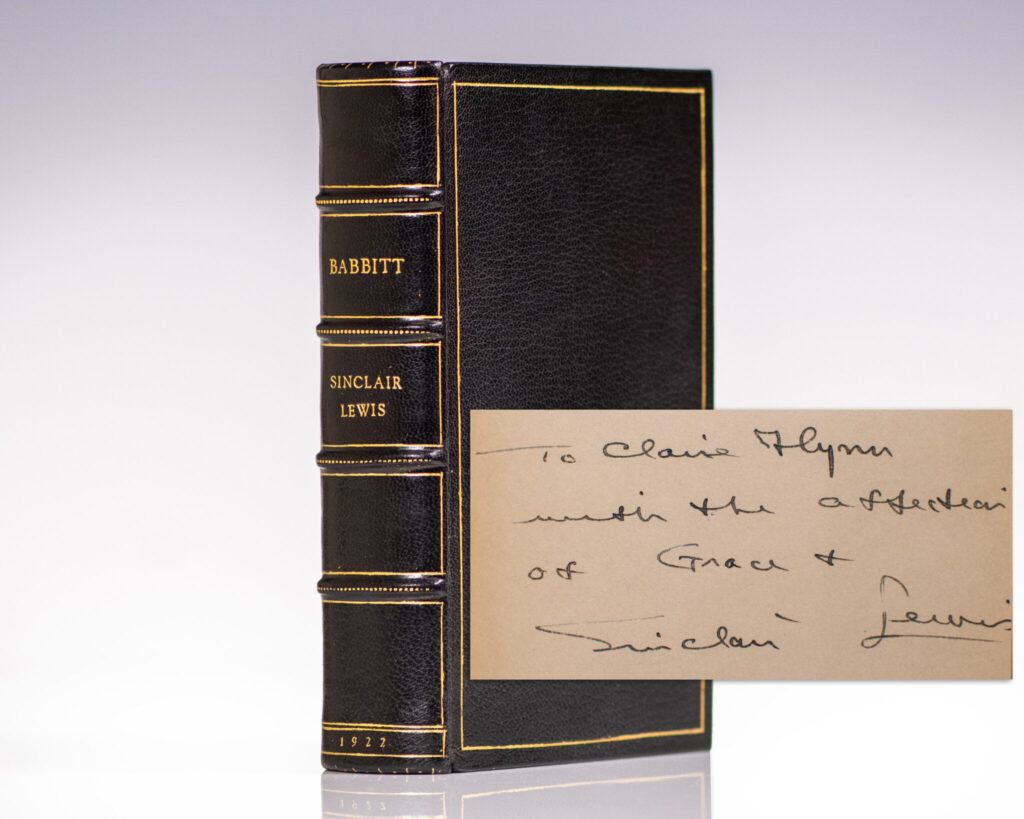 BABBITT
SINCLAIR
LEWIS
1922
To Claire Flynn
with the affection
of Grace &
Sinclair Lewis